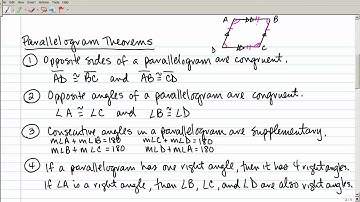 A B
D C
Parallelogram Theorems
① Opposite sides of a parallelogram are congruent.
AD ≅ BC and AB ≅ CD
② Opposite angles of a parallelogram are congruent.
∠A ≅ ∠C and ∠B ≅ ∠D
③ Consecutive angles in a parallelogram are supplementary.
m∠A + m∠B = 180 m∠C + m∠D = 180
m∠B + m∠C = 180 m∠D + m∠A = 180
④ If a parallelogram has one right angle, then it has 4 right angles.
If ∠A is a right angle, then ∠B, ∠C, and ∠D are also right angles.